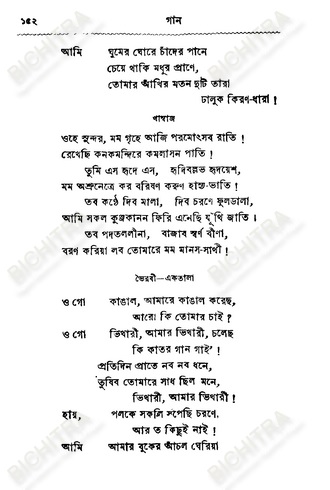 ১৫২ গান
আমি ঘুমের ঘোরে চাঁদের পানে
চেয়ে থাকি মধুর প্রাণে,
তোমার আঁখির মতন দুটি তারা
ঢালুক কিরণ-ধারা !
খাম্বাজ
ওহে সুন্দর, মম গৃহে আজি পরমোৎসব রাতি !
রেখেছি কনকমন্দিরে কমলাসন পাতি !
তুমি এস হৃদে এস, হৃদিবল্লভ হৃদয়েশ,
মম অশ্রুনেত্রে কর বরিষণ করুণ হাস্য-ভাতি !
তব কণ্ঠে দিব মালা, দিব চরণে ফুলডালা,
আমি সকল কুঞ্জকানন ফিরি এনেছি যূঁথি জাতি ।
তব পদতললীনা, বাজাব স্বর্ণ বীণা,
বরণ করিয়া লব তোমারে মম মানস-সাথী !
ভৈরবী—একতালা
ও গো কাঙাল, আমারে কাঙাল করেছ,
আরো কি তোমার চাই ?
ও গো ভিখারী, আমার ভিখারী, চলেছ
কি কাতর গান গাই' !
প্রতিদিন প্রাতে নব নব ধনে,
তুষিব তোমারে সাধ ছিল মনে,
ভিখারী, আমার ভিখারী !
হায়, পলকে সকলি সঁপেছি চরণে,
আর ত কিছুই নাই !
আমি আমার বুকের আঁচল ঘেরিয়া
BICHITRA